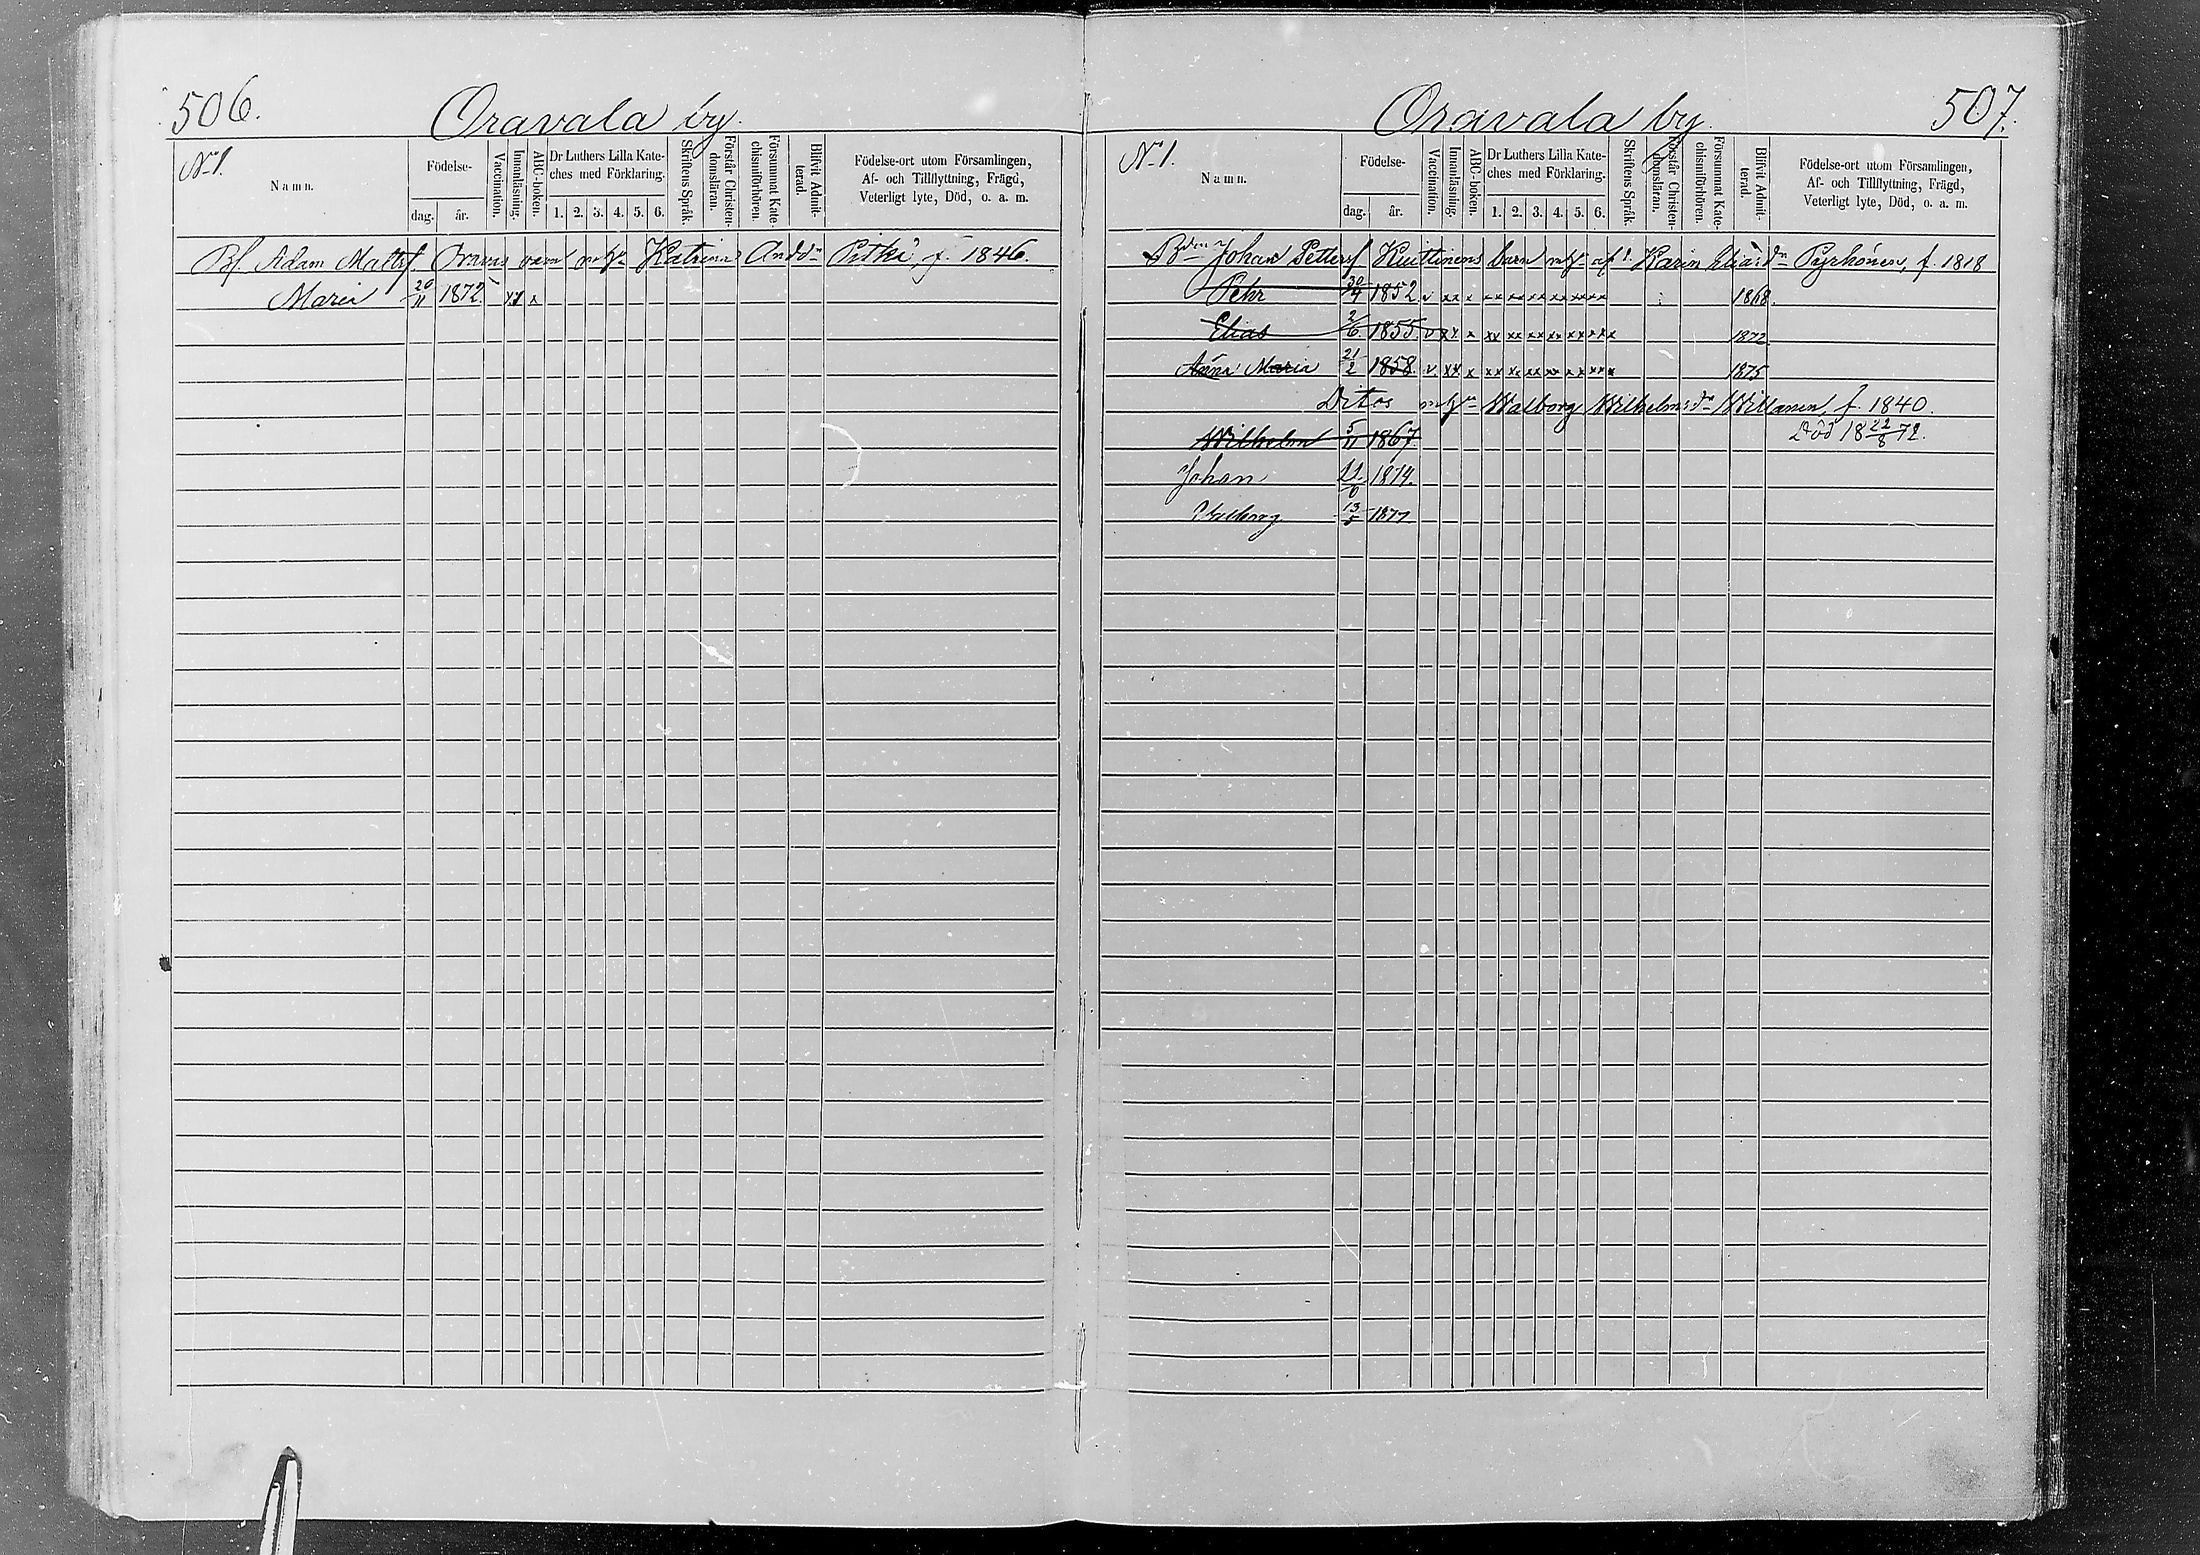 506.
Oravala by.
No 1.
Namn.
Födelse-
dag. år.
Vaccination.
Innanläsning.
ABC-boken.
Dr Luthers Lilla Kate-
ches med Förklaring.
1. 2. 3. 4. 5. 6.
Skriftens Språk.
Förstår Christen-
domsläran.
Försummat Kate-
chismiförhören.
Blifvit Admit-
terad.
Födelse-ort utom Församlingen,
Af- och Tillflyttning, Frägd,
Veterligt lyte, Död, o. a. m.
Bf. Adam Mattsf. Oravas barn m. h. Katrina And.dr Pitki, f. 1846.
Maria 20/11 1872 xx x
507.
Oravala by.
No 1.
Namn.
Födelse-
dag. år.
Vaccination.
Innanläsning.
ABC-boken.
Dr Luthers Lilla Kate-
ches med Förklaring.
1. 2. 3. 4. 5. 6.
Skriftens Språk.
Förstår Christen-
domsläran.
Försummat Kate-
chismiförhören.
Blifvit Admit-
terad.
Födelse-ort utom Församlingen,
Af- och Tillflyttning, Frägd,
Veterligt lyte, Död, o. a. m.
Johan Pettersf Kuittinens barn Karin Elias dr Pyrhönen, f. 1818
Pehr 30/4 1852 v xx x xx xx xx xx xx xx 1868.
Elias 2/6 1855 v xx x xx xx xx xx xx xx x 1872
Anna Maria 21/2 1858. v. xx x xx xx xx xx xx xx x 1875
Ditos Walborg Wilhelms dr Willanen, f. 1840.
Wilhelm 5/11 1867 Död 18 22/8 72.
Johan 1874.
Valborg 1877